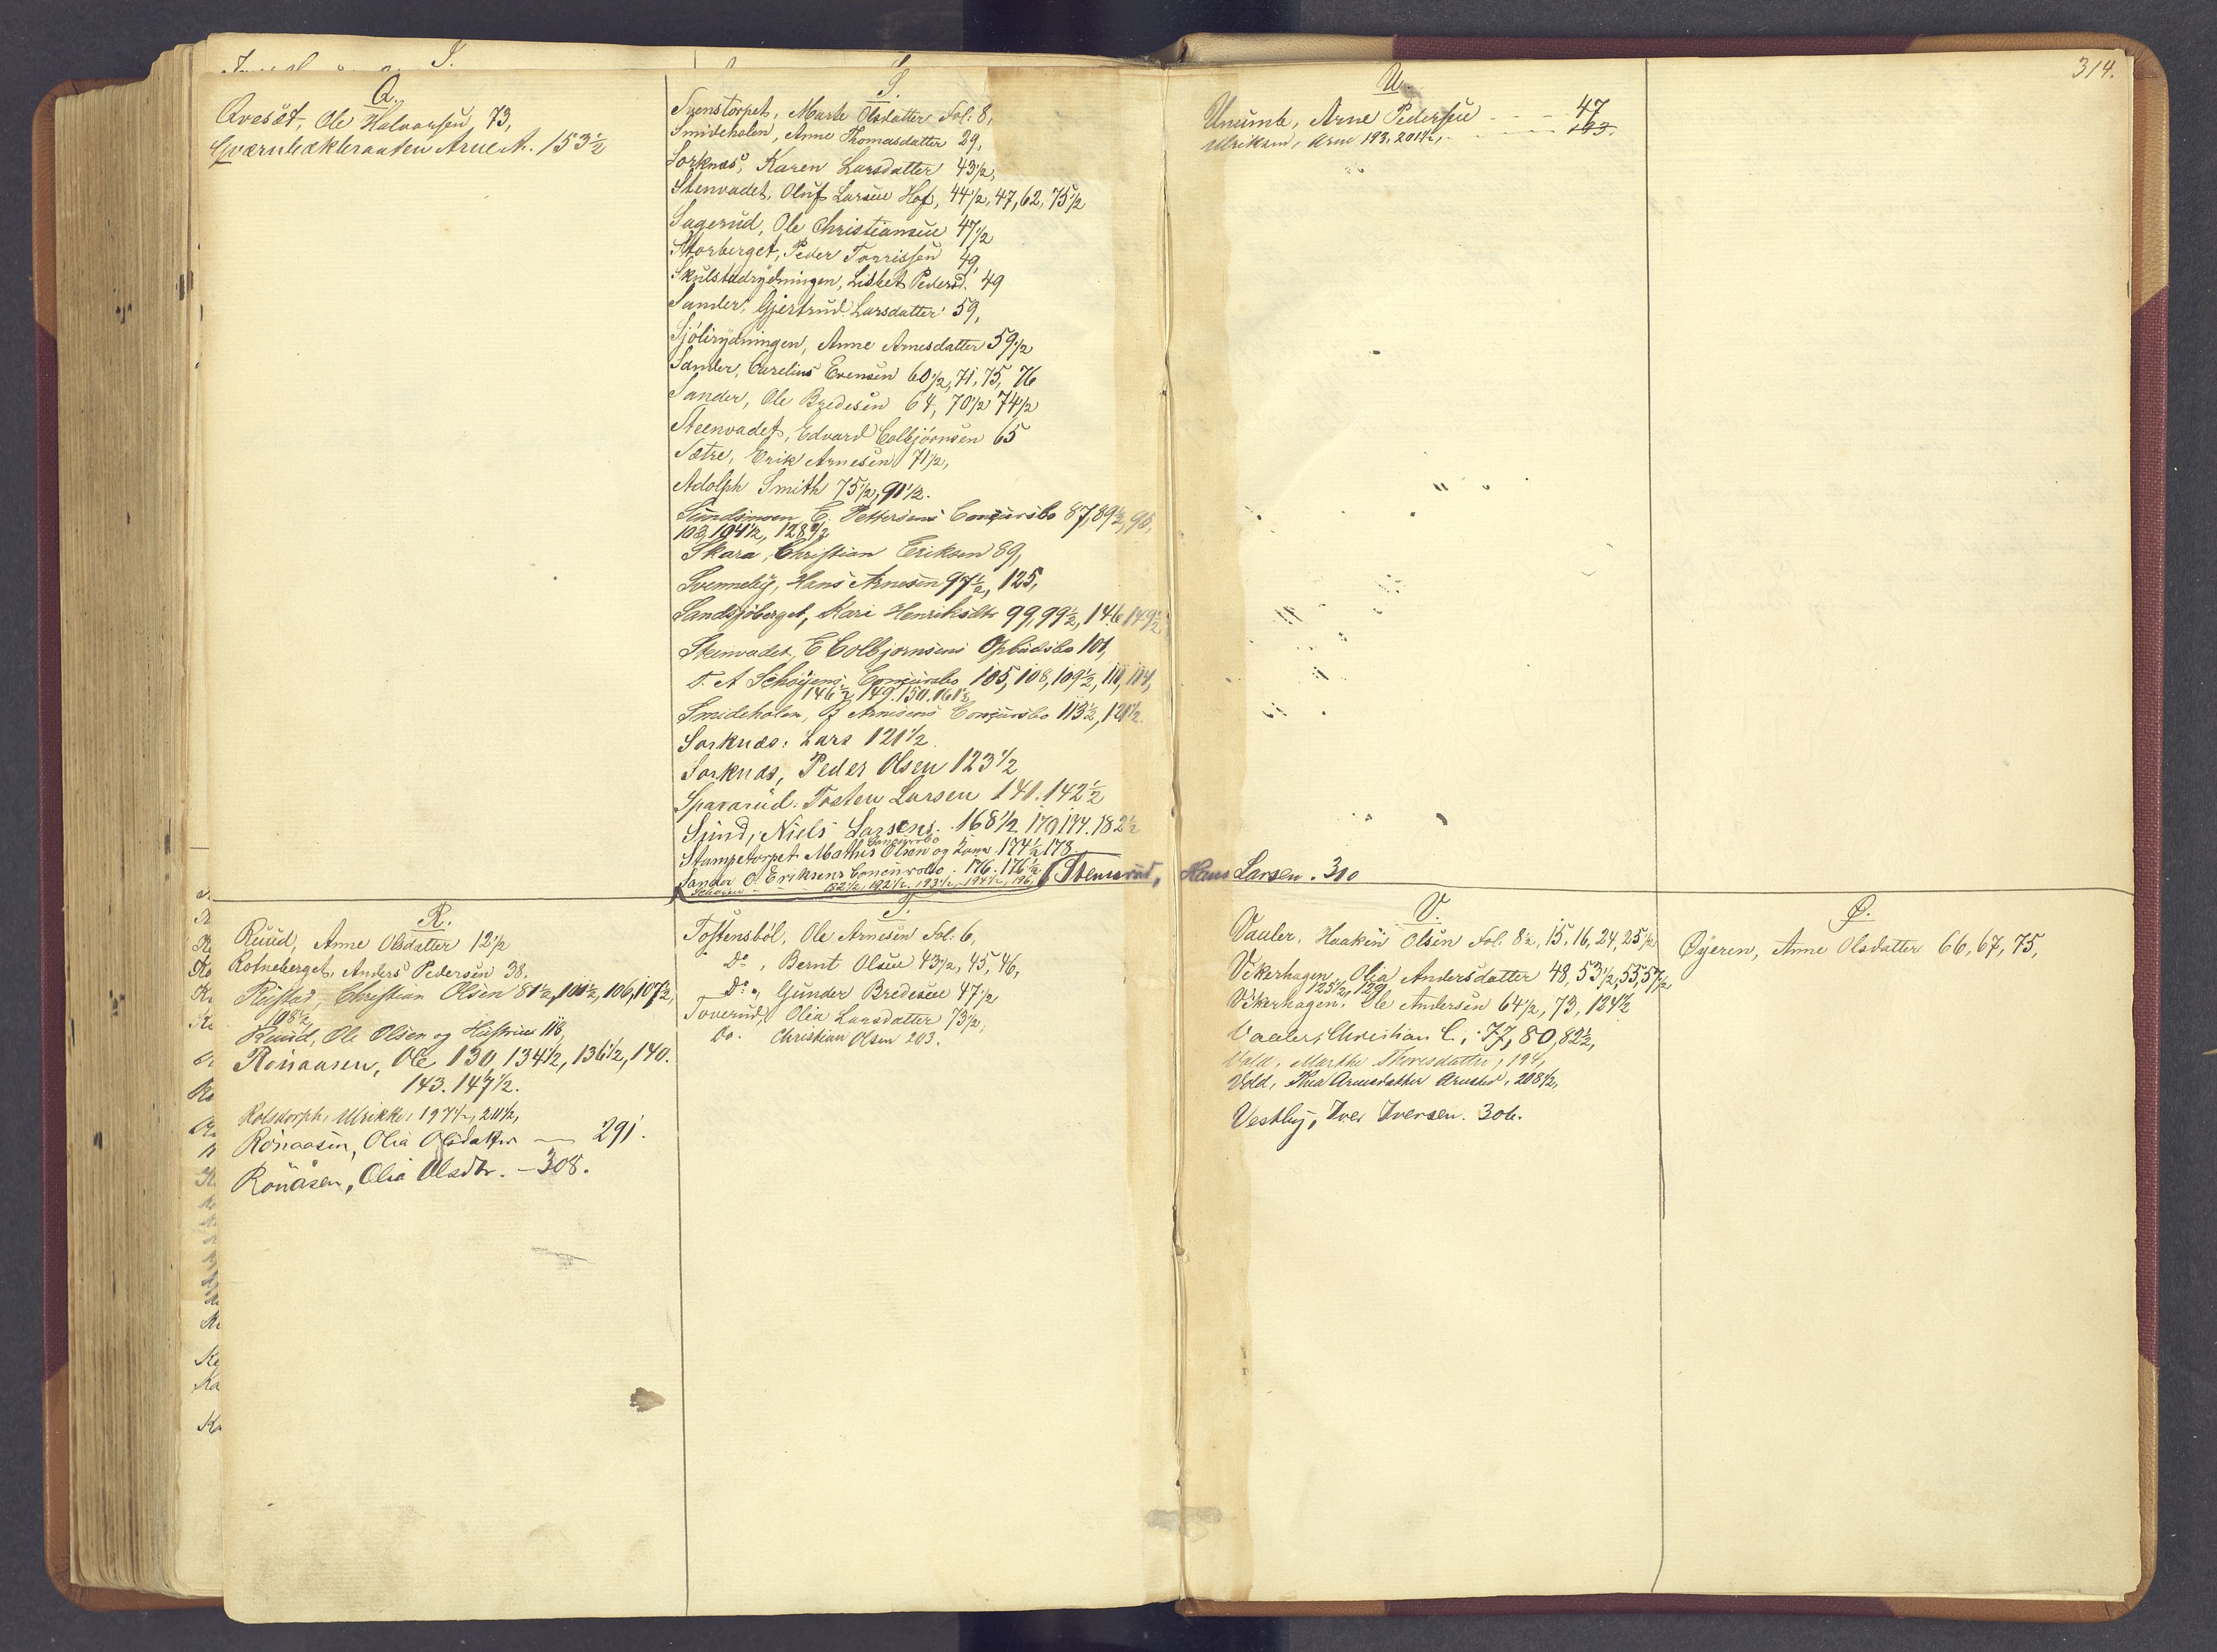 Q.
Qvesæt, Ole Halvorsen, 73,
Qværnbækbraaten Arne A. 153½
S.
Svenstorpet, Marte Olsdatter Fol: 8,
Smideholen, Anne Thomasdatter 29,
Sorknæs, Karen Larsdatter 43½,
Stenvadet, Oluf Larsen Hof, 44½, 47, 62, 75½
Sagerud, Ole Christiansen 47½
Storberget, Peder Torrissen 49,
Skulstadrydningen, Lisbet Pedersd. 49
Sander, Gjertrud Larsdatter 59,
Sjölirydningen, Anne Arnesdatter 59½
Sander, Carelius Evensen 60½, 71, 75, 76
Sander, Ole Bredesen 64, 70½ 74½
Steenvadet, Edvard Colbjörnsen 65
Sætre, Erik Arnesen 71½,
Adolph Smith 75½, 91½.
Sundsmoen E. Pettersens Concursbo 87, 89½, 98,
103, 104½, 128½
Skara, Christian Eriksen 89,
Svenneby, Hans Arnesen 97½, 125,
Sandsjöberget, Kari Henriksdtr 99, 99½, 146 149½
Steenvadet, E Colbjornsens Opbudsbo 101,
T. A Schøyens Concursbo 105, 108, 109½, 111, 114,
146½ 149. 150. 161½
Smideholen, Arnesens Concursbo 113½, 121½.
Sorknæs: Lars 121½.
Sorknæs, Peder Olsen 123½
Spararud: Tosten Larsen 141. 142½
Sund, Niels Larsens 168½ 170 174. 182½
Concursbo
Stampetorpet Mathis Olsen og Kone 174½ 178
Sander O. Eriksens Concursbo. 176. 176½ Stemsrud, Hans Larsen. 310
Schøyen 182½, 192½, 193½, 194½, 196,
R.
Ruud, Anne Olsdatter 12½
Rotneberget, Anders Pedersen 38.
Rustad, Christian Olsen 81½, 101½, 106, 107½,
108½
Ruud, Ole Olsen og Hustrues 118,
Rönaasen, Ole 130, 134½, 136½, 140.
143. 147½.
Rolsdorph, Ulrikke, 197½, 211½,
Rönaasen, Olia Olsdatter — 291.
Rönåsen, Olia Olsdtr. — 308.
T.
Tostensböl, Ole Arnesen Fol: 6,
Do, Bernt Olsen 43½, 45, 46,
Do, Gunder Bredesen 47½
Toverud, Olia Larsdatter 73½,
Do. Christian Olsen 203.
314.
U.
Unumb, Arne Pedersen - - - 47
Ulriksen, Arne 193, 201½, - - - 193.
V.
Vauler, Haaken Olsen Fol. 8½, 15, 16, 24, 25½
Vikerhagen, Olia Andersdatter 48, 53½, 55, 57½
125½, 129
Vikerhagen, Ole Andersen 64½, 73, 124½
Vaaler, Christian C.; 77, 80, 82½,
Vold, Marthe Thoresdatter, 194,
Vold, Thea Arnesdatter 208½,
Vestby, Iver Iversen. 306.
Ø.
Øyeren, Anne Olsdatter 66, 67, 75,